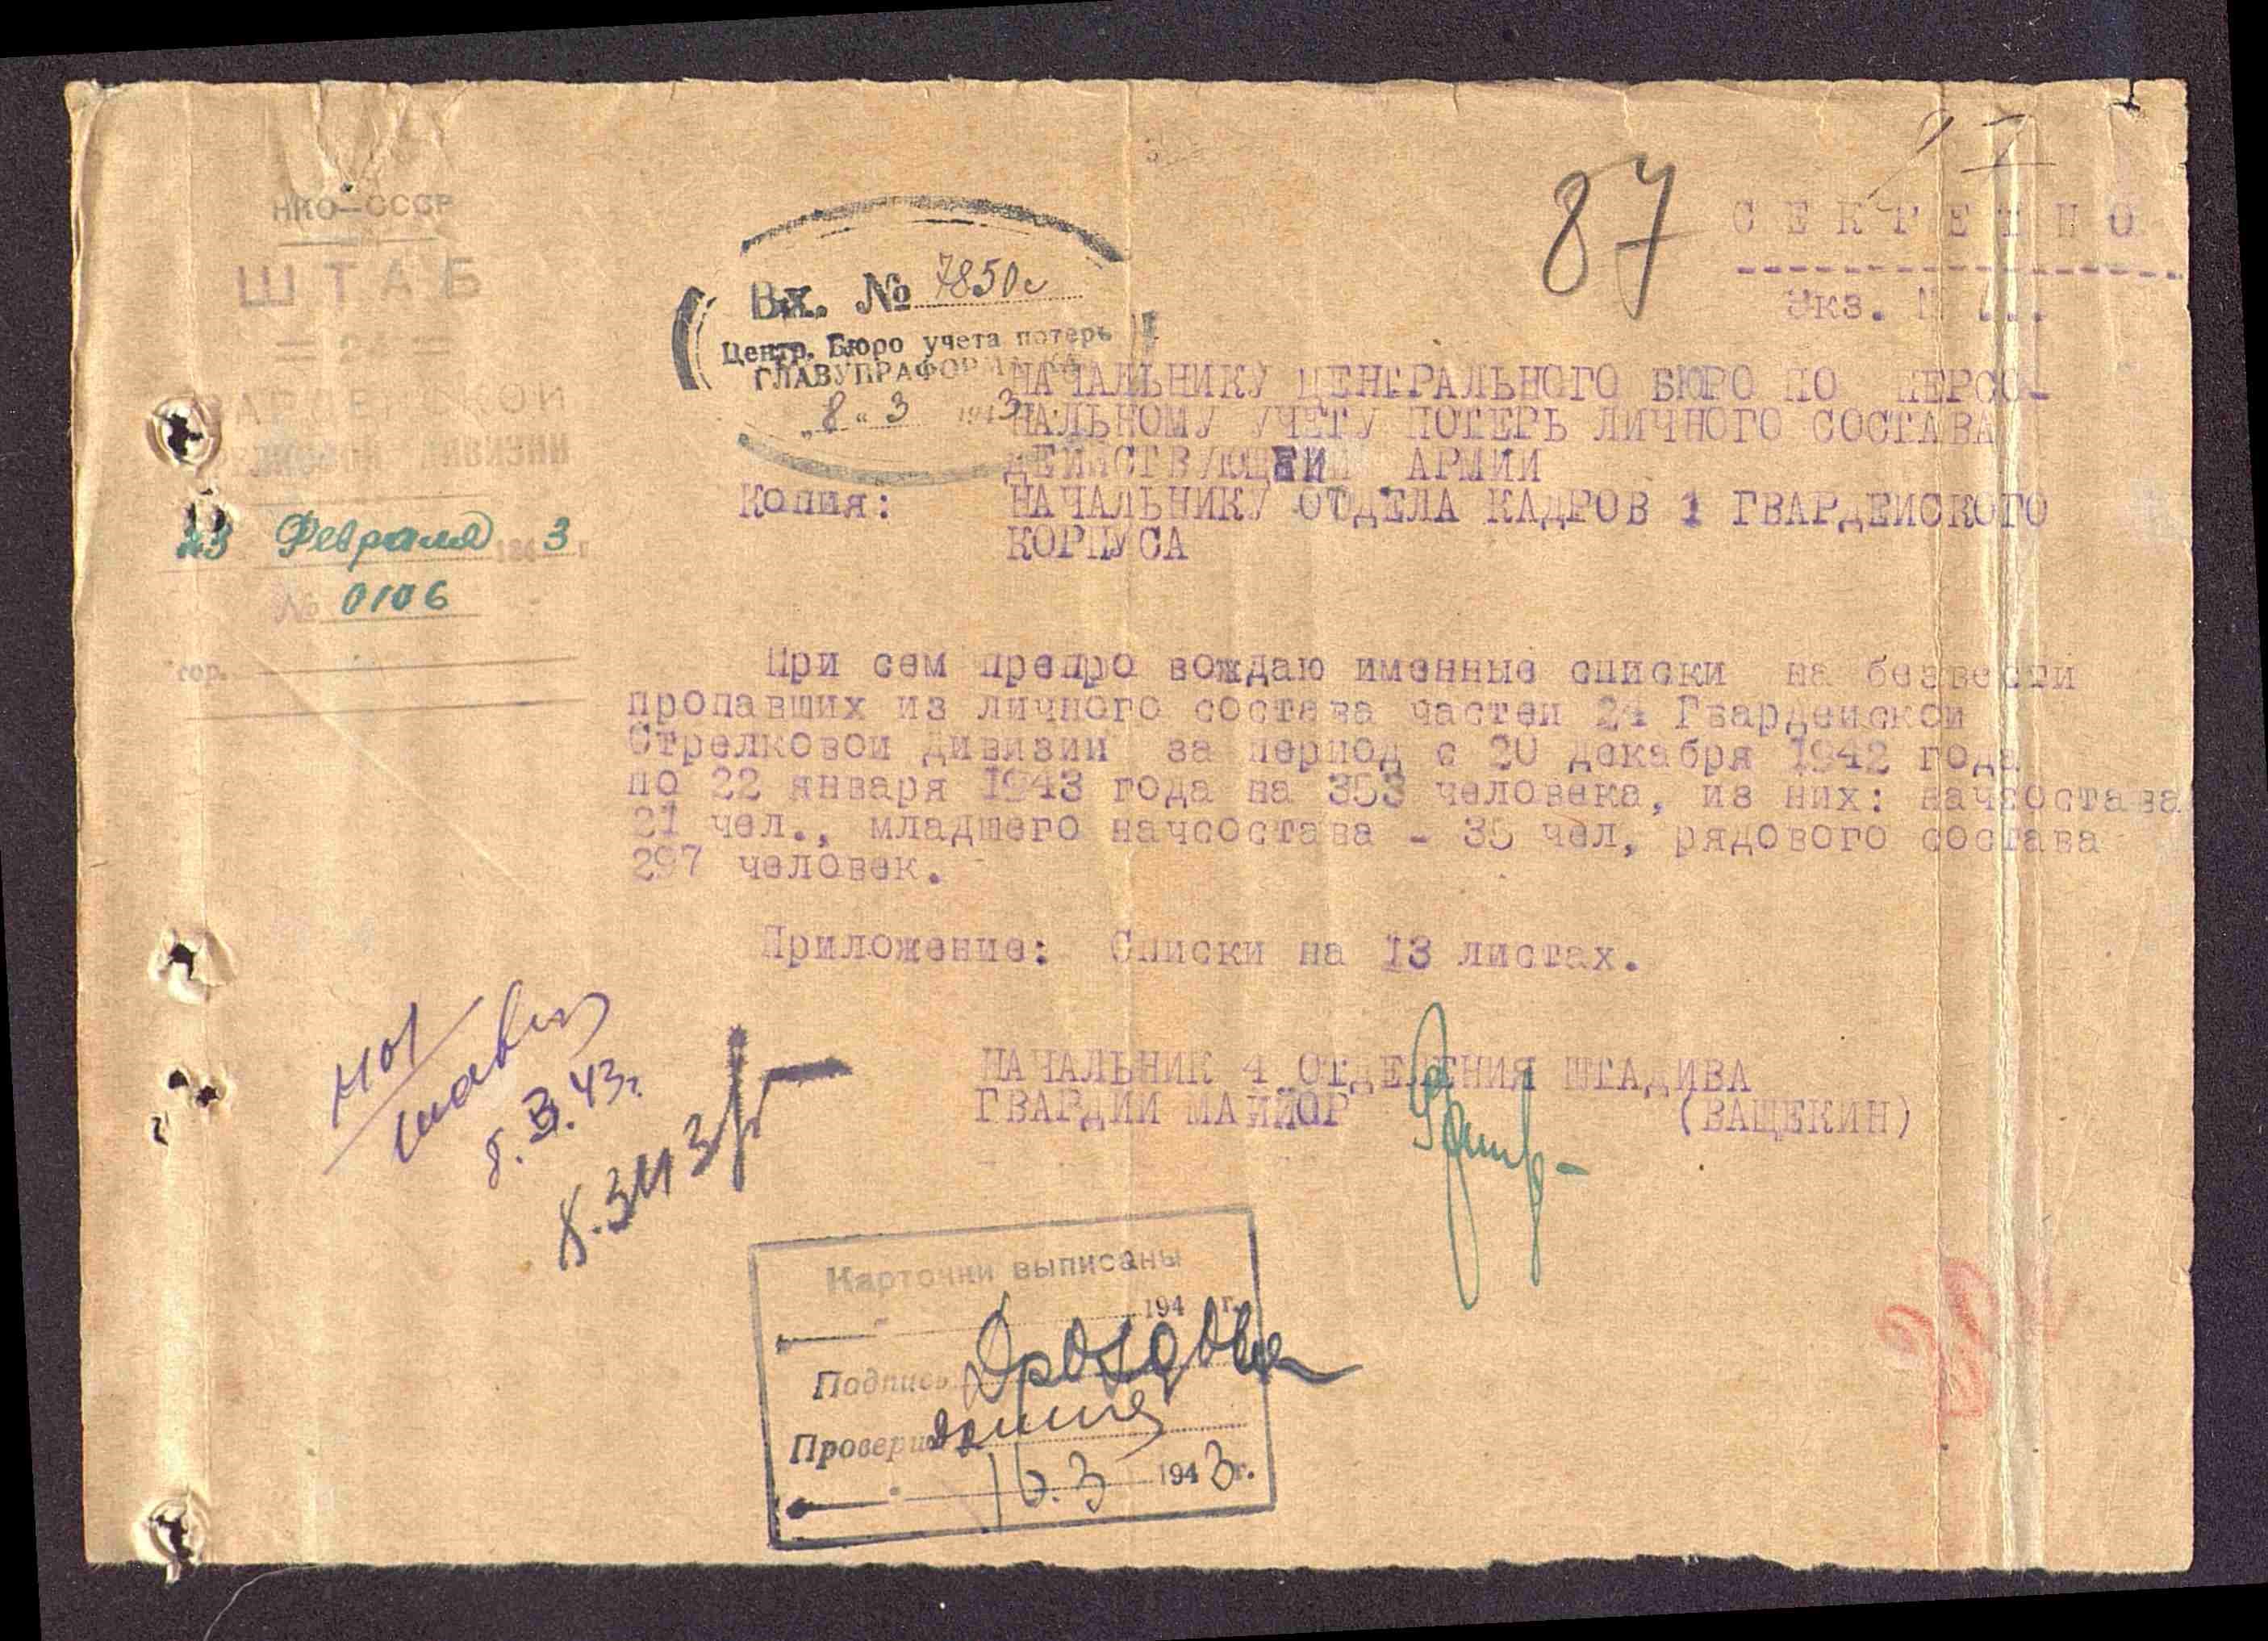 87
СЕКРЕТНО
Экз. №
НКО—СССР
ШТАБ
ГВАРДЕЙСКОЙ
СТРЕЛКОВОЙ ДИВИЗИИ
23 Февраля 1943 г.
№ 0106
гор.
Вх. № 7850с
Центр. Бюро учета потерь
ГЛАВУПРАФОРМ КА
„8" 3 1943
НАЧАЛЬНИКУ ЦЕНТРАЛЬНОГО БЮРО ПО ПЕРСО-
НАЛЬНОМУ УЧЕТУ ПОТЕРЬ ЛИЧНОГО СОСТАВА
ДЕЙСТВУЮЩЕЙ АРМИИ
Копия: НАЧАЛЬНИКУ ОТДЕЛА КАДРОВ 1 ГВАРДЕЙСКОГО
КОРПУСА
При сем препро вождаю именные списки на безвести
пропавших из личного состава частей 24 Гвардейской
Стрелковой дивизии за период с 20 декабря 1942 года
по 22 января 1943 года на 353 человека, из них: начсостава
21 чел., младшего начсостава - 35 чел, рядового состава
297 человек.
Приложение: Списки на 13 листах.
НАЧАЛЬНИК 4 ОТДЕЛЕНИЯ ШТАДИВА
ГВАРДИИ МАЙОР (ВАЩЕКИН)
8.III.43г.
8.3.43г
Карточки выписаны
194 г.
Подпись Дроздова
Проверил
16.3 1943г.